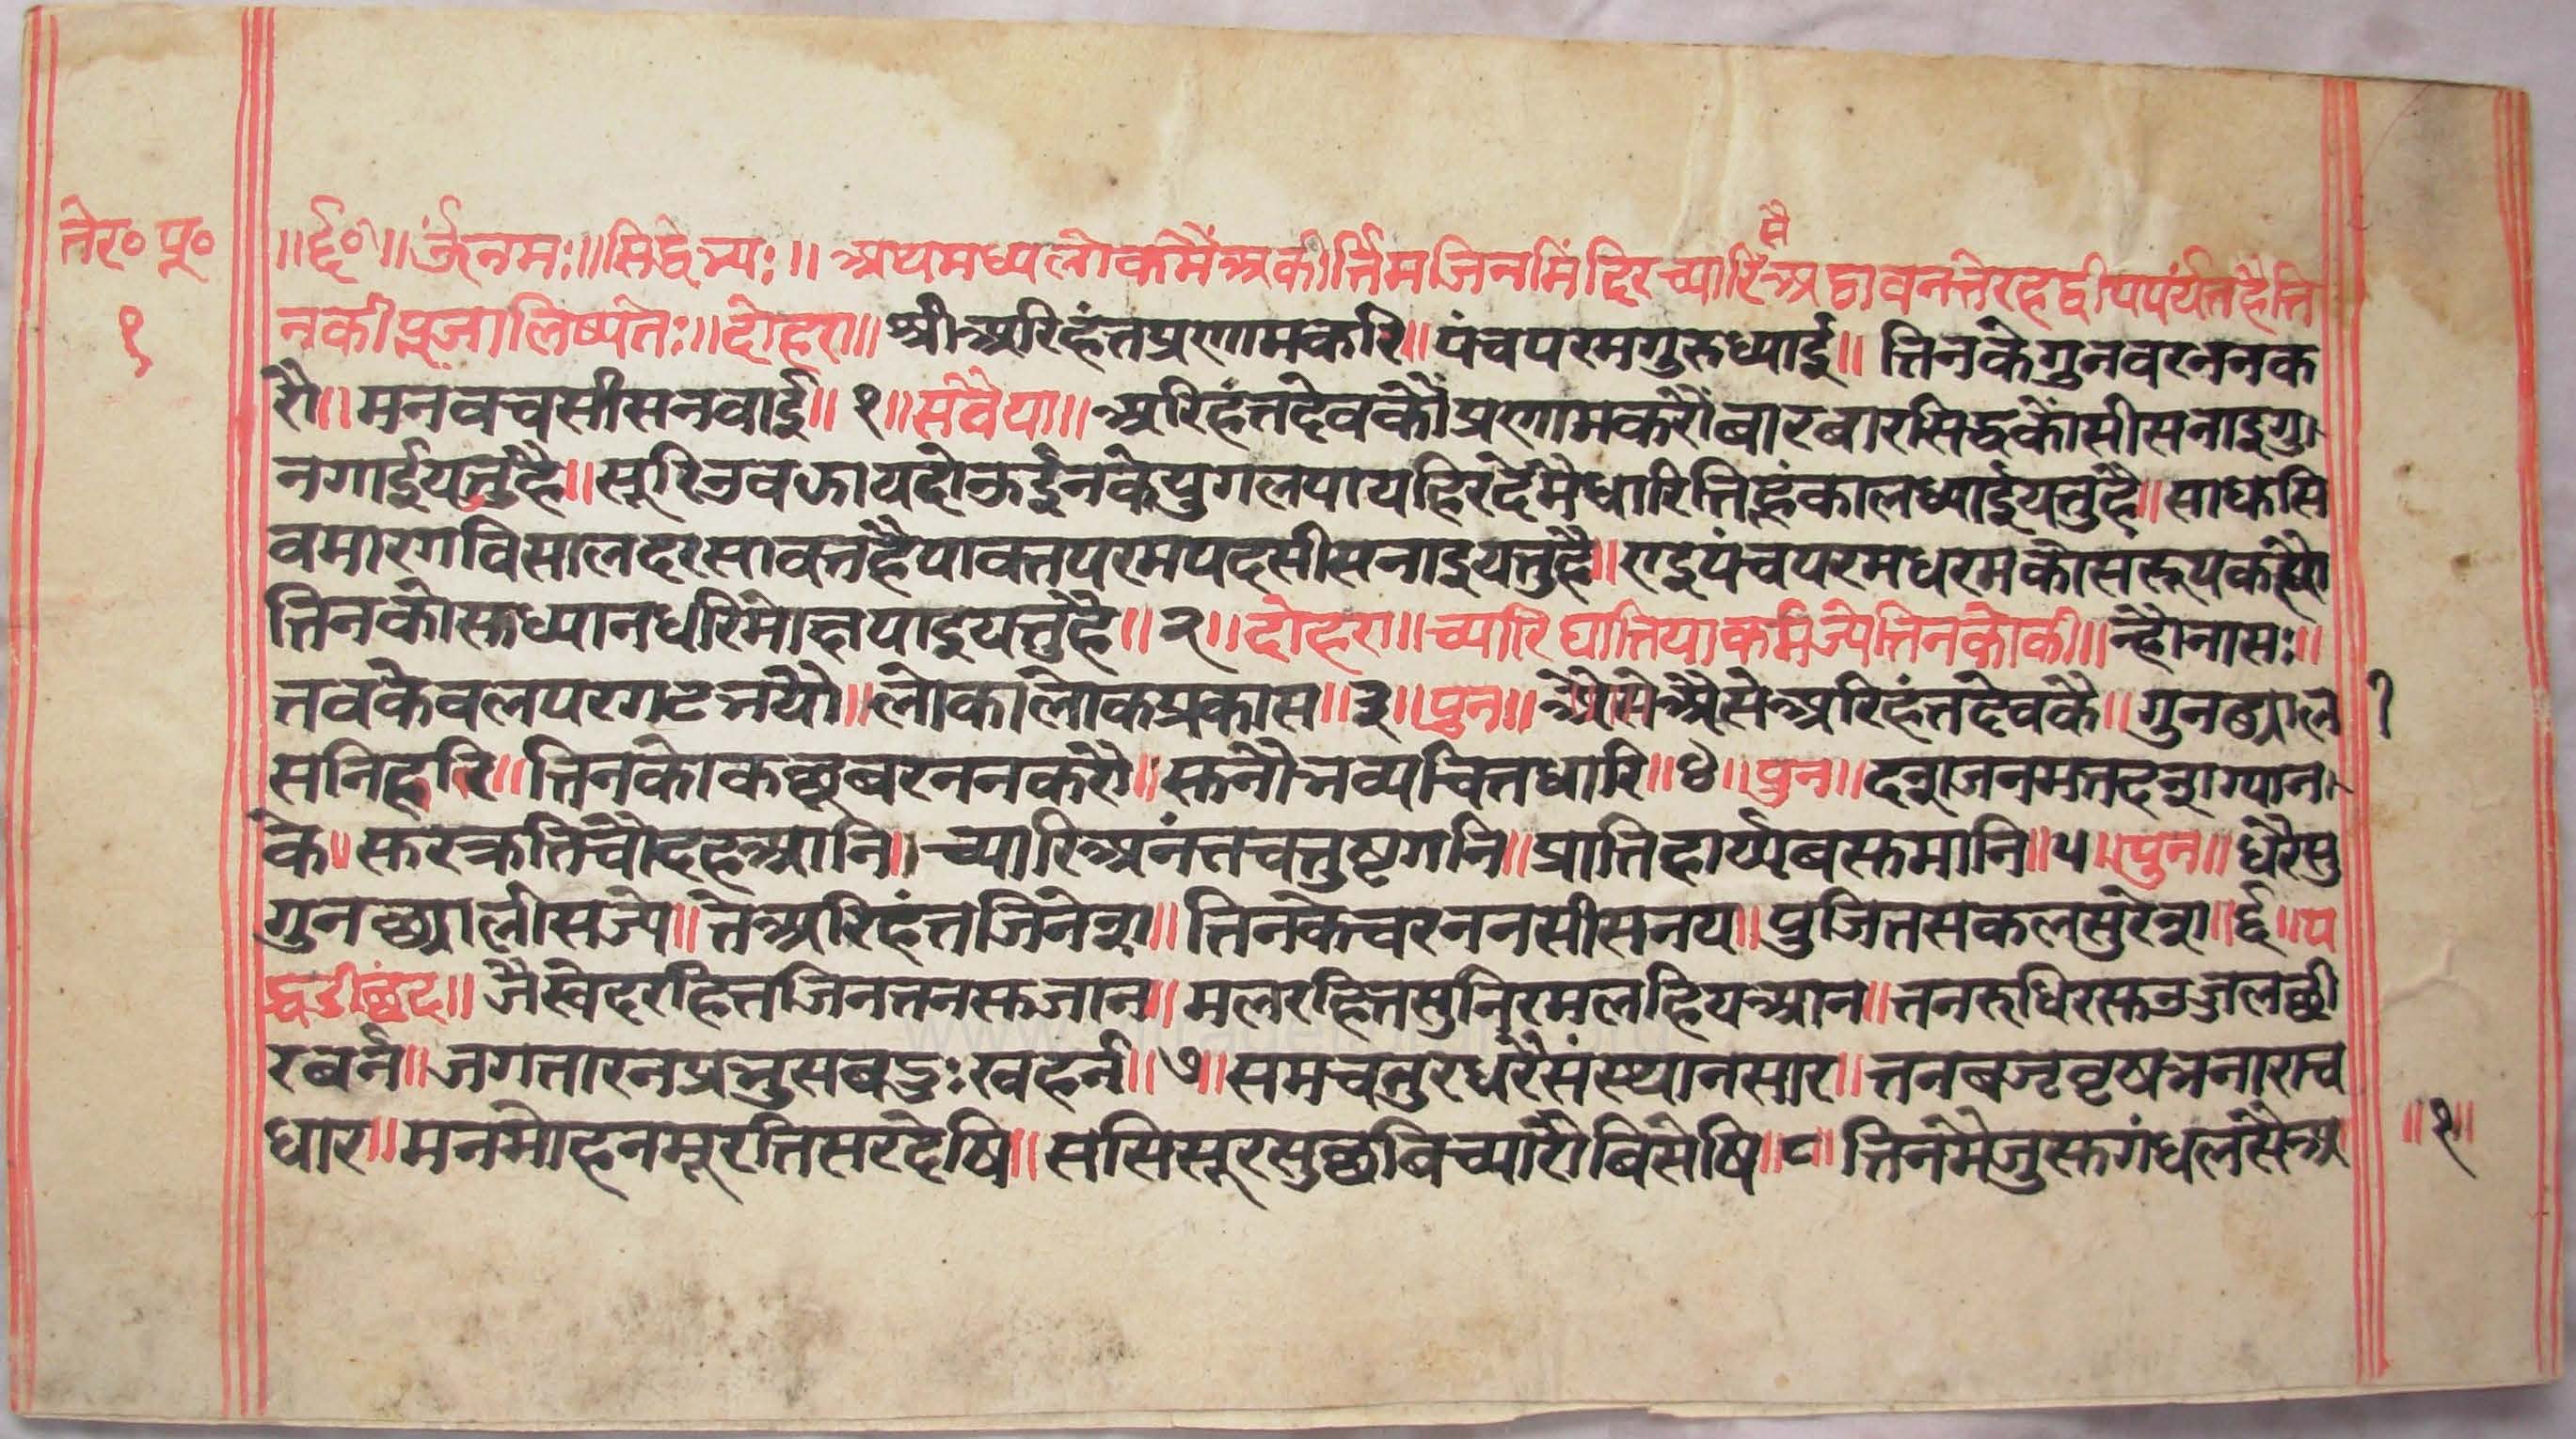 तेर० पू०
१
॥र्द्द०॥ ॐनमः॥सिद्धेभ्यः॥ अथमध्यलोकमैंअकीर्त्तिमजिनमिंदिरच्यारिसैअठ्ठावनतेरहद्वीपपर्यंतहैति
नकीपूजालिष्यतः॥दोहरा॥ श्रीअरिहंतप्रणामकरि॥पंचपरमगुरुध्याई॥ तिनकेगुनवरननक
रौ॥मनवचसीसनवाई॥१॥सवैया॥ अरिहंतदेवकौंप्रणामकरौंबारबारसिद्धकौंसीसनाइगु
नगाईयतुंहै॥सूरिउवझायदोऊईनकेयुगलपायहिरदेमैधारितिहूंकालध्याईयतुहै॥साधुसि
वमारगविसालदरसावतहैपावतपरमपदसीसनाइयतुहै॥एइपंचपरमधरमकौसरूपकह्यौ
तिनकोसुध्यानधरिमोक्षपाइयतुहै॥२॥दोहरा॥च्यारिघातियाकर्मज्येतिनकोकी॥न्हौनासः॥
तवकेवलपरगटभयौ॥लोकालोकप्रकास॥३॥पुन॥ औसेऔसेअरिहंतदेवकै॥गुनछ्याल
सनिहारि॥तिनकोकछूबरननकरौ॥सुनौभव्यचितधारि॥४॥पुन॥दशजनमतहदशग्यान
के॥सुरक्रतिचौदहआनि॥ च्यारिअनंतचतुष्टगनि॥प्रातिहार्य्यबसुमानि॥५॥पुन॥धरैसु
गुनछ्यालीसज्ये॥तेअरिहंतजिनेश॥तिनकेचरननसीसनय॥पुजितसकलसुरेश॥६॥प
द्धडीछंद॥जैस्वेदरहिततजिनतनसुजान॥मलरहितसुनिरमलहियआन॥तनरुधिरसुउज्जलछी
रबर्न॥जगतारनप्रभुसबदुःखहर्न॥७॥समचतुरधरैसंस्थानसार॥तनबज्रवृषभनाराच
धार॥मनमोहनमूरतिसरदेषि॥ससिसूरसुछबिच्यारौबिसेषि॥८॥तिनमैजुसुगंधलसैअ
॥१॥